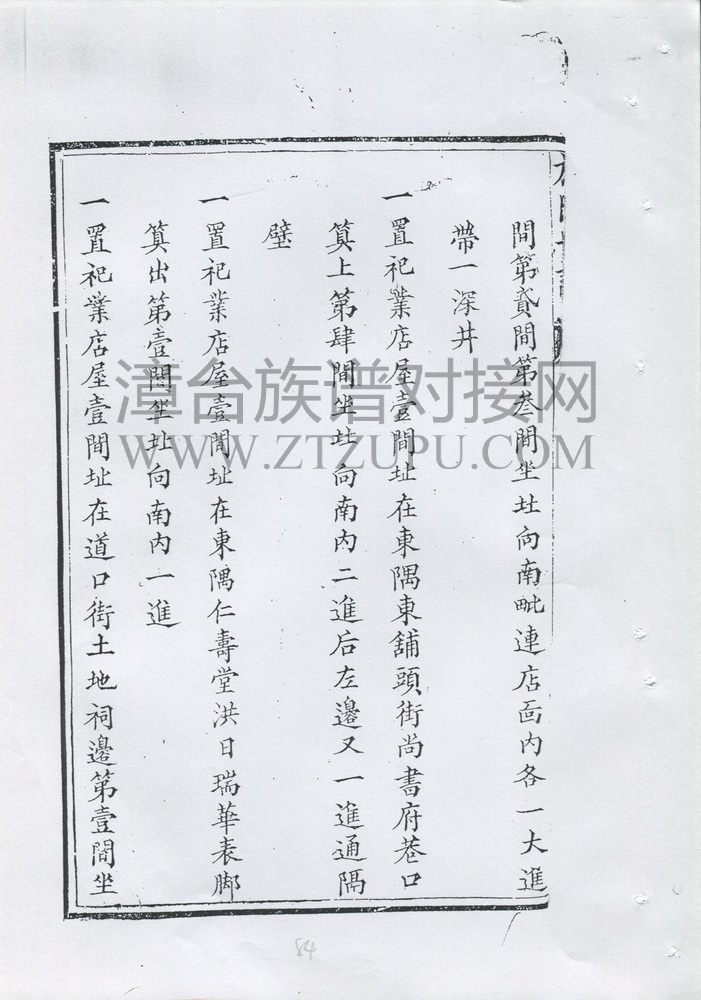 間第貳間第叁間坐址向南毗連店面内各一大進
帶一深井
一置祀業店屋壹間址在東隅東舖頭街尚書府巷口
箕上第肆間坐址向南内二進后左邊又一進通隔
壁
一置祀業店屋壹間址在東隅仁壽堂洪日瑞華表脚
箕出第壹間坐址向南内一進
一置祀業店屋壹間址在道口街土地祠邊第壹間坐
漳台族谱对接网
WWW.ZTZUPU.COM
84